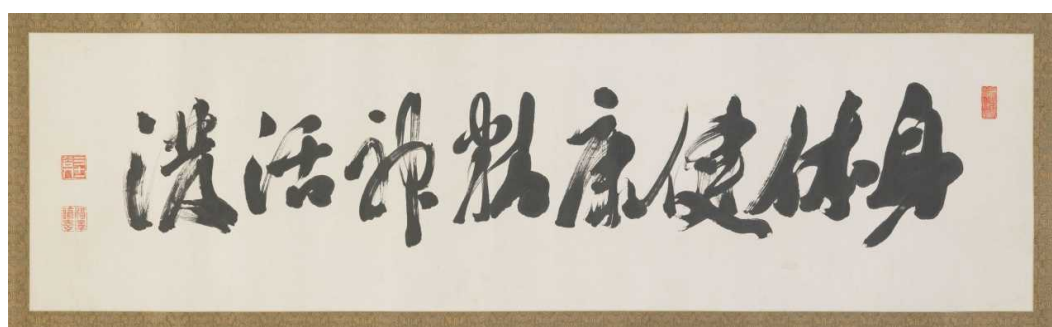 身体健康精神活溌